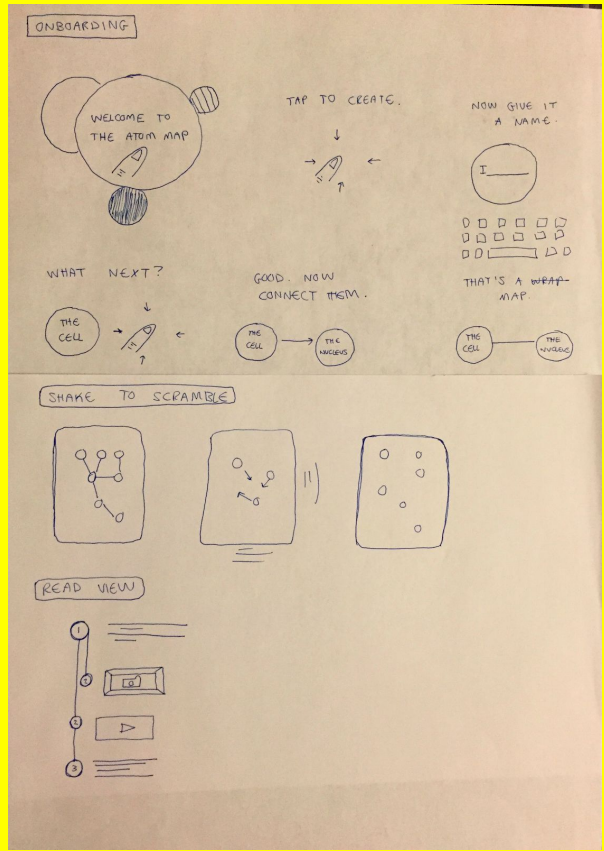 ONBOARDING
WELCOME TO
THE ATOM MAP
TAP TO CREATE.
NOW GIVE IT
A NAME.
I
WHAT NEXT?
THE
CELL
GOOD. NOW
CONNECT THEM.
THE
CELL
THE
NUCLEUS
THAT'S A WRAP
MAP.
THE
CELL
THE
NUCLEUS
SHAKE TO SCRAMBLE
READ VIEW
1
2
3